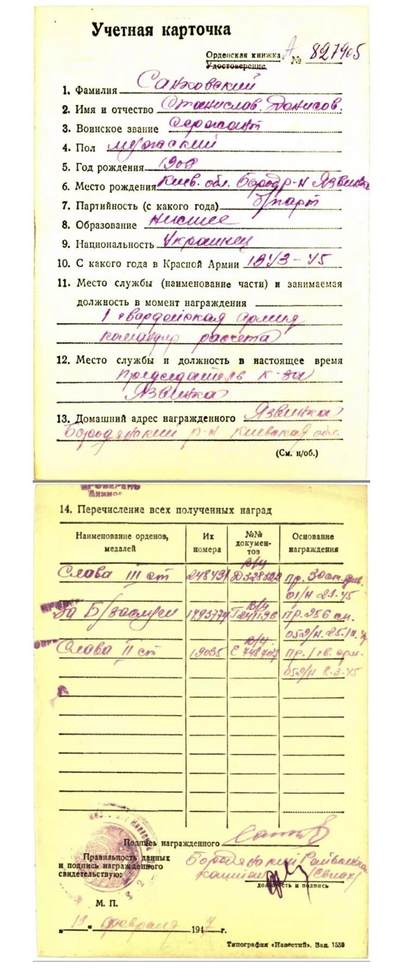 Учетная карточка
Орденская книжка А № 827905
Удостоверение
1. Фамилия Санховский
2. Имя и отчество Станислов. Донисов.
3. Воинское звание сержант
4. Пол мужской
5. Год рождения 1908
6. Место рождения Киев. обл. Бородр-н Язвинка
7. Партийность (с какого года) б/парт
8. Образование низшее
9. Национальность Украинец
10. С какого года в Красной Армии 1943-45
11. Место службы (наименование части) и занимаемая
должность в момент награждения
1 гвардейская армия
командир расчета
12. Место службы и должность в настоящее время
Председатель к-за
Язвинка
13. Домашний адрес награжденного Язвинка
Бородянский р-н Киевская обл.
(См. н/об.)
14. Перечисление всех полученных наград
Наименование орденов, медалей
Их номера
№№ документов
Основание награждения
Слава III ст
За Б/заслуги
Слава II ст 19035
Подпись награжденного
Правильность данных
и подпись награжденного
свидетельствую:
должность и подпись
М. П.
февраля 194 г.
Типография «Известий». Зак. 1550